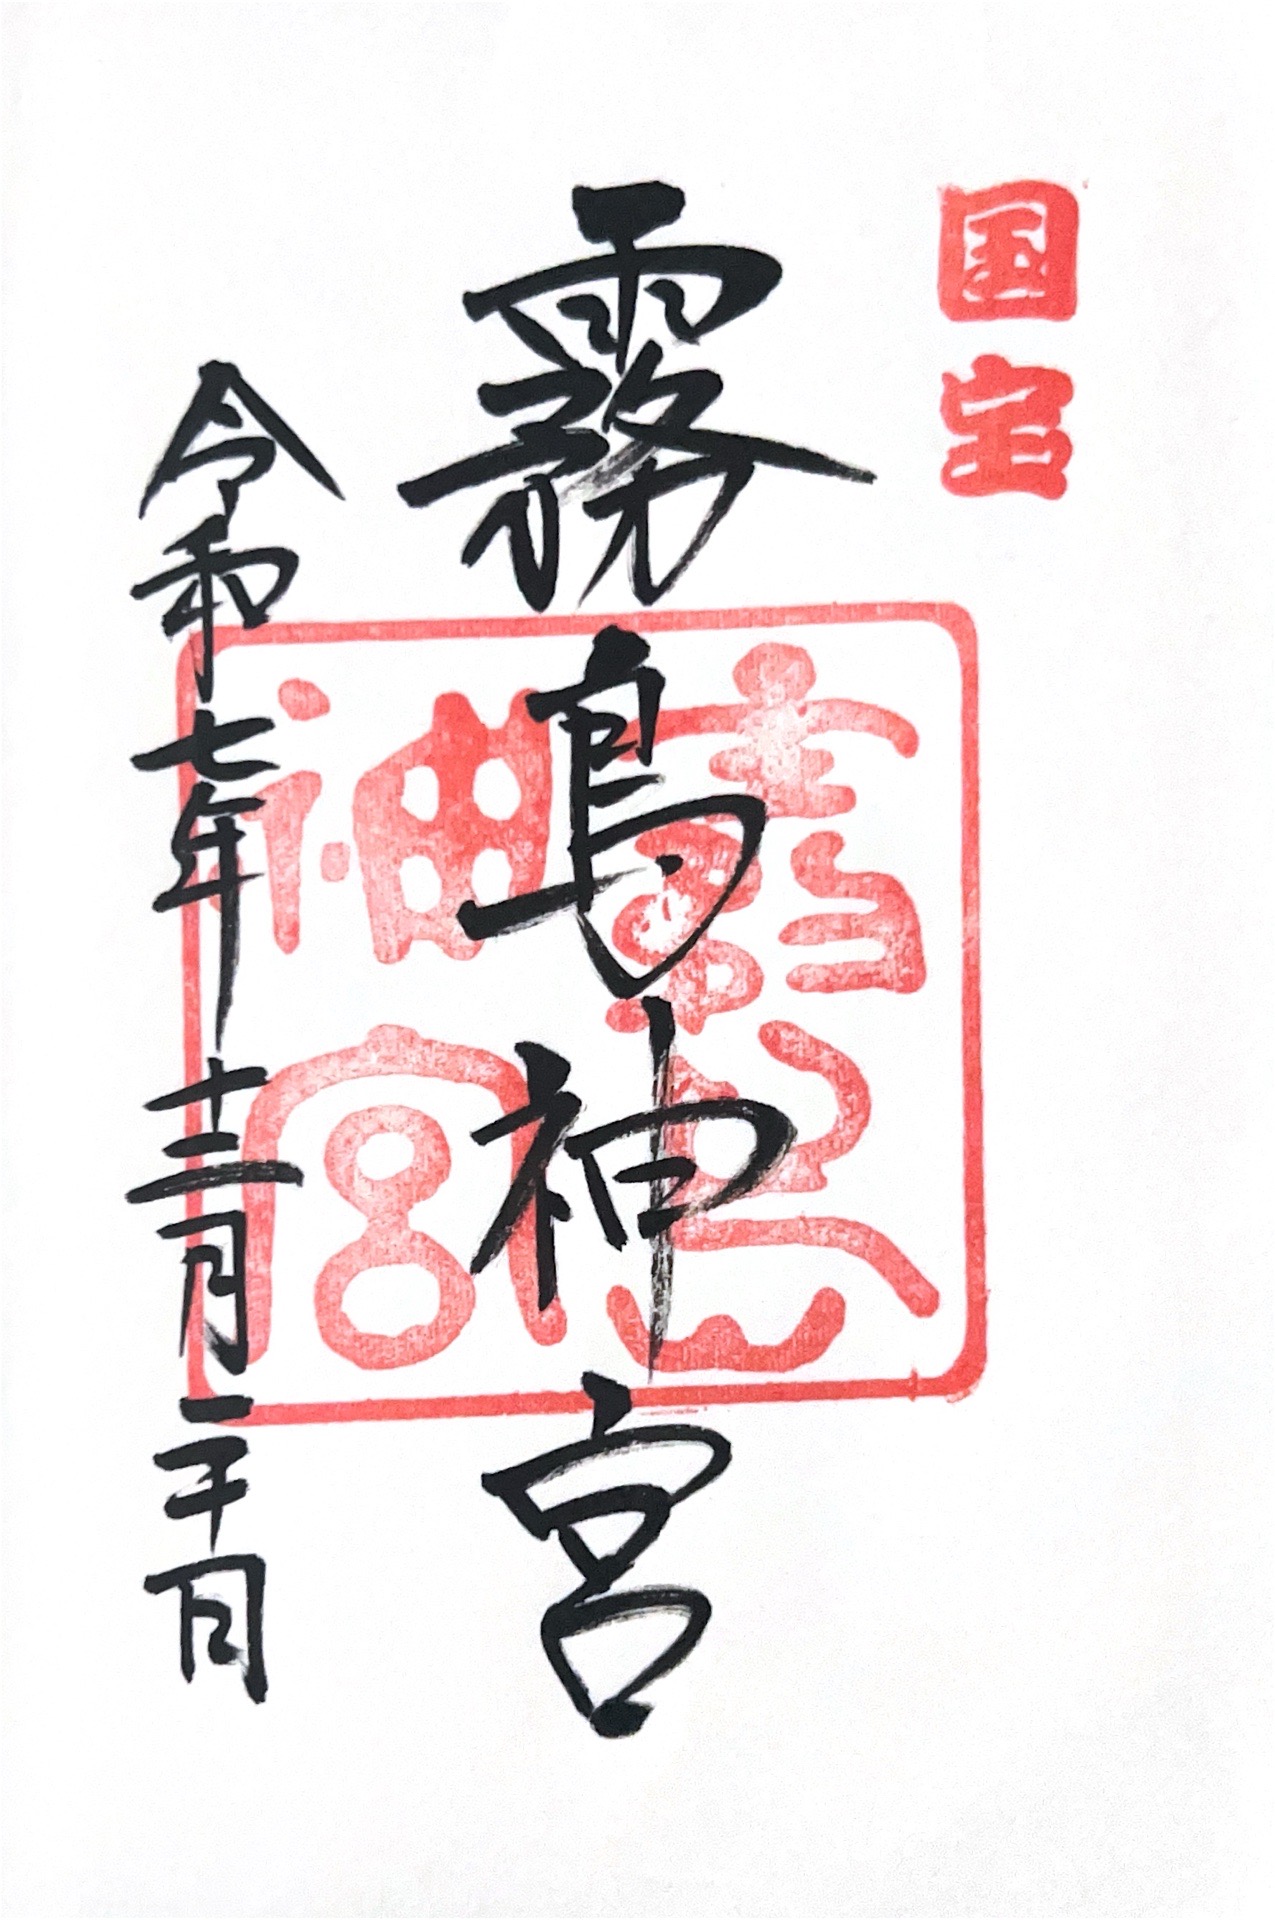 国宝
霧島神宮
霧島
神宮
令和七年十二月二十日